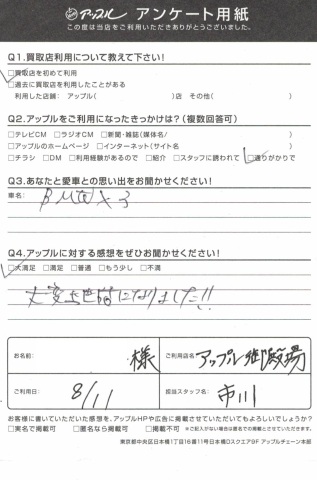 アップル アンケート用紙
この度は当店をご利用いただきありがとうございました。
Q1.買取店利用について教えて下さい！
□買取店を初めて利用
□過去に買取店を利用したことがある
利用した店舗： アップル( )店 その他( )
Q2.アップルをご利用になったきっかけは？(複数回答可)
□テレビCM □ラジオCM □新聞・雑誌(媒体名/ )
□アップルのホームページ □インターネット(サイト名 )
□チラシ □DM □利用経験があるので □紹介 □スタッフに誘われて □通りがかりで
Q3.あなたと愛車との思い出をお聞かせください！
車名：
BMW X3
Q4.アップルに対する感想をぜひお聞かせください！
□大満足 □満足 □普通 □もう少し □不満
大変お世話になりました!!
お名前： 様
ご利用店名 アップル御殿場
ご利用日： 8/11
担当スタッフ名： 市川
お客様に書いていただいた感想を、アップルHPや広告に掲載させていただいてもよろしいでしょうか？
□実名で掲載可 □匿名なら掲載可 □掲載不可 ※ご記入がない場合は匿名での掲載とさせていただきます。
東京都中央区日本橋1丁目16番11号日本橋Dスクエア9F アップルチェーン本部